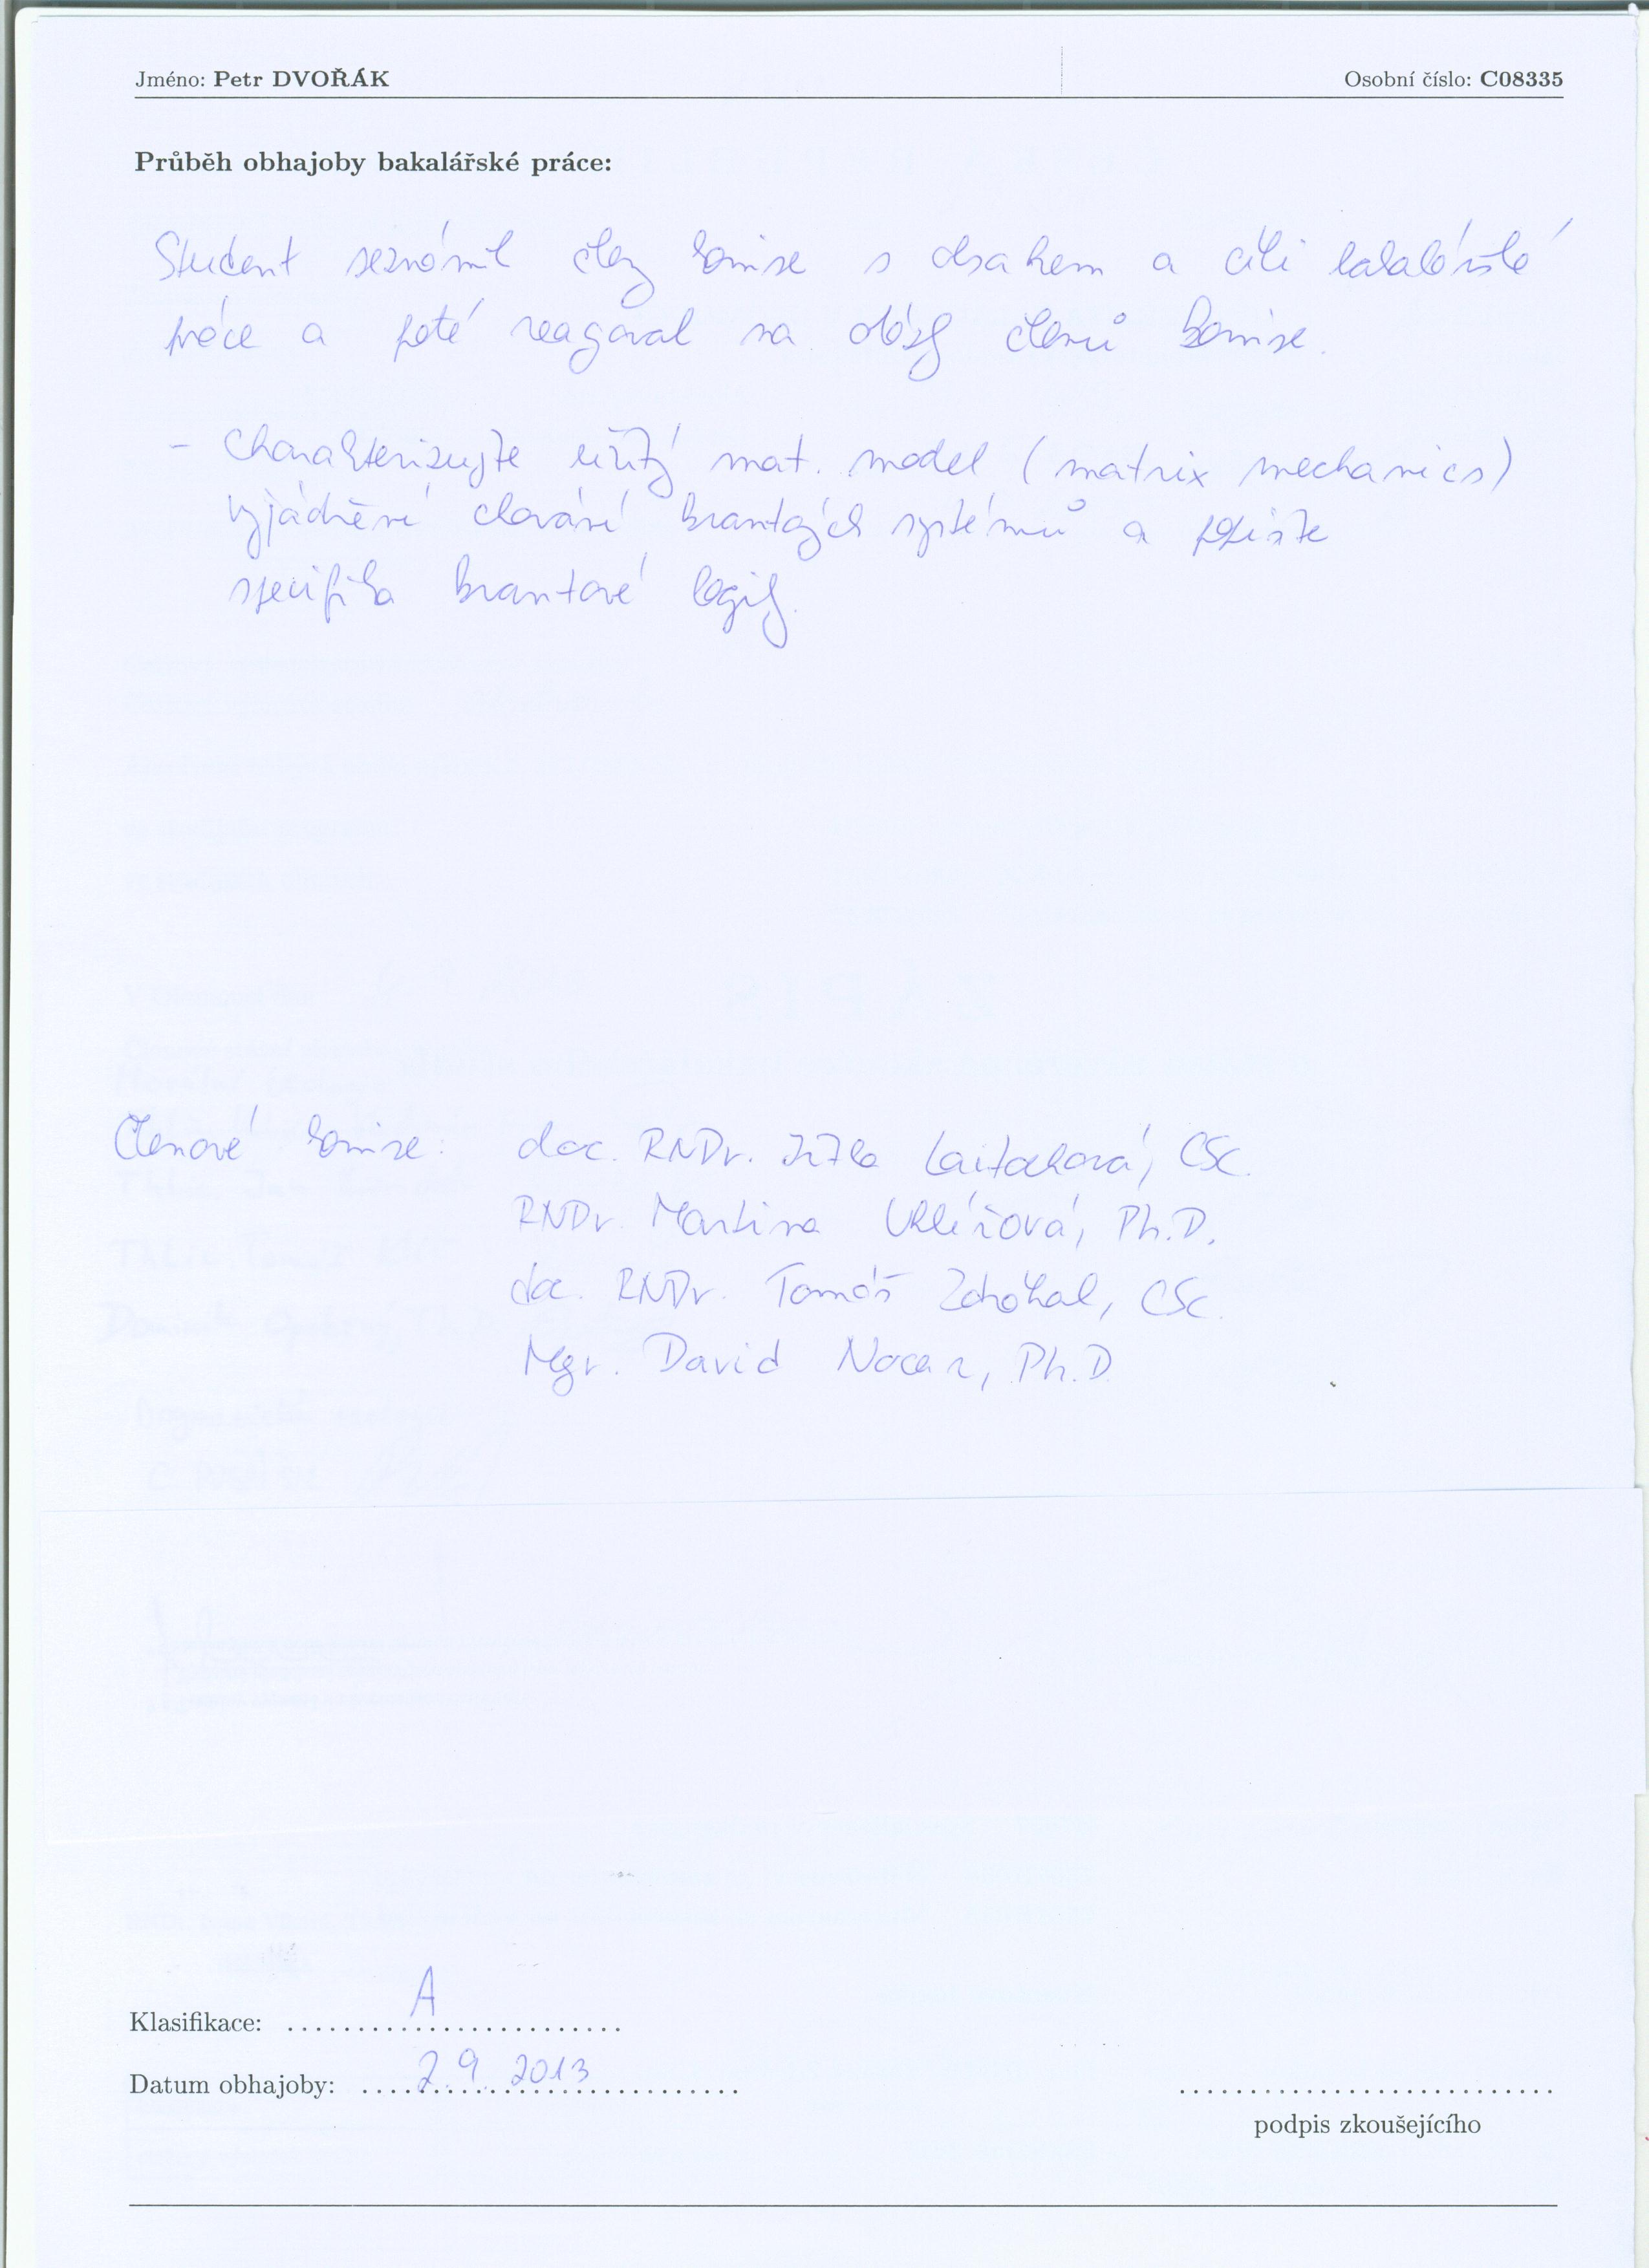 Jméno: Petr DVOŘÁK Osobní číslo: C08335
Průběh obhajoby bakalářské práce:
Student seznámil členy komise s obsahem a cíli bakalářské
práce a poté reagoval na otázky členů komise.
- Charakterizujte užitý mat. model (matrix mechanics)
vyjádření chování kvantových systémů a popište
specifika kvantové logiky.
Členové komise: doc. RNDr. Jitka Laitochová, CSc.
RNDr. Martina Uhlířová, Ph.D.
doc. RNDr. Tomáš Zdráhal, CSc.
Mgr. David Nocar, Ph.D
Klasifikace: A
Datum obhajoby: 2.9. 2013
podpis zkoušejícího